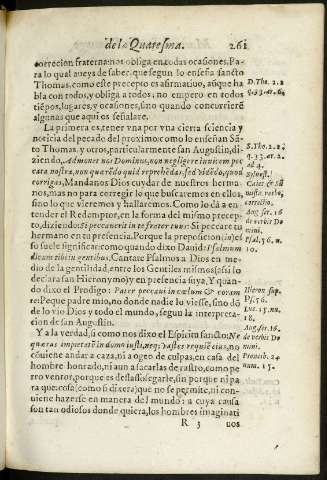 de la Quaresma. 261
correcion fraterna: nos obliga en todas ocasiones. Pa-
ra lo qual aueys de saber, que segun lo enseña sancto
Thomas, como este precepto es afirmatiuo, aũque ha
bla con todos, y obliga a todos: no empero en todos
tiẽpos, lugares, y ocasiones, sino quando concurrierẽ
algunas que aqui os señalare.
La primera es, tener vna por vna cierta sciencia y
noticia del pecado del proximo: como lo enseñan Sã-
to Thomas y otros, particularmente san Augustin, di
ziendo, Admonet nos Dominus, non negligere inuicem pec
cata nostra, non quærẽdo quid reprehẽdas, sed vidẽdo, quod
corrigas, Mandanos Dios cuydar de nuestros herma-
nos, mas no para corregir lo que buscaremos en ellos,
sino lo que vieremos y hallaremos. Como lo dà a en-
tender el Redemptor, en la forma del mismo precep-
to, diziendo: Si peccauerit in te frater tuus: Si peccare tu
hermano en tu presencia. Porque la preposicion (in) el
so suele significar: como quando dixo Dauid: Psalmum
dicam tibi in gentibus. Cantare Psalmos a Dios en me-
dio de la gentilidad, entre los Gentiles mismos (assi lo
declara san Hieronymo) y en presencia suya. Y quan-
do dixo el Prodigo: Pater peccaui in cœlum & coram
te: Peque padre mio, no donde nadie lo viesse, sino dõ
de lo vio Dios y todo el mundo, segun la interpreta-
cion de san Augustin.
Y a la verdad, si como nos dixo el Espiritu sancto: Ne
quæras impietatẽ in domo iusti, neq; vastes requiẽ eius, no
conuiene andar a caza, ni a ogeo de culpas, en casa del
hombre honrado, ni aun a sacarlas de rastro, como pe
rro ventor, porque es desassossegarle, sin porque ni pa
ra que: cosa (como si dixera) que no se permite, ni con-
uiene hazerse en manera del mundo: a cuya causa
son tan odiosos donde quiera, los hombres imaginati
R 3 uos
D. Tho. 2. 2
q. 33. ar. 2.
ad 4.
Aug. ser. 16
de verbis Do
mini.
Psal. 56. n.
10.
Hieron. sup.
Ps. 56.
Luc. 15. nu.
18.
Aug. ser. 16.
de verbis Do
mini.
Prouerb. 24
num. 15.